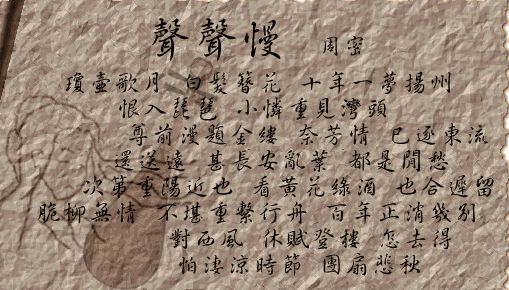 聲聲慢 周密
瓊壺歌月 白髮簪花 十年一夢揚州
恨入琵琶 小憐重見灣頭
尊前漫題金縷 奈芳情 已逐東流
還送遠 甚長安亂葉 都是閒愁
次第重陽近也 看黃花綠酒 也合遲留
脆柳無情 不堪重繫行舟 百年正消幾別
對西風 休賦登樓 怎去得
怕淒涼時節 團扇悲秋